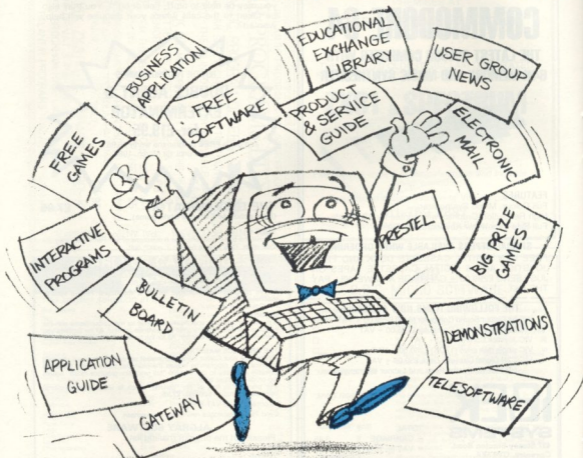 EDUCATIONAL
EXCHANGE
LIBRARY
USER GROUP
NEWS
BUSINESS
APPLICATION
FREE
SOFTWARE
PRODUCT
& SERVICE
GUIDE
ELECTRONIC
MAIL
FREE
GAMES
PRESTEL
BIG PRIZE
GAMES
INTERACTIVE
PROGRAMS
BULLETIN
BOARD
DEMONSTRATIONS
APPLICATION
GUIDE
GATEWAY
TELESOFTWARE